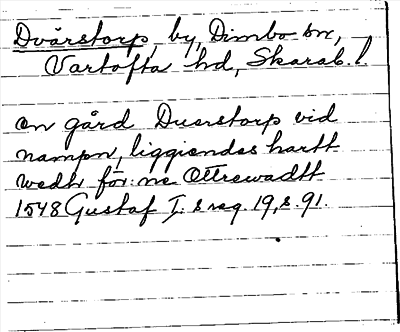 Dvärstorp, by, Dimbo sn,
Vartofta hd, Skarab. l.
en gård Duerstorp vid
nampn, liggiendes hartt
wedh för:ne Ottrewadtt
1548 Gustaf I:s reg. 19, s. 91.